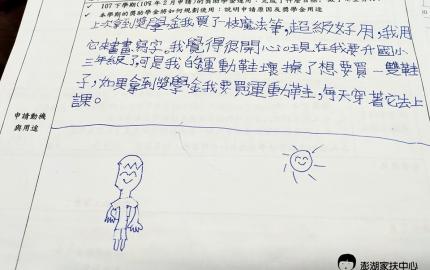 107下學期(108年2月申請)的獎助學金運用
✓ 本學期的獎助學金將如何規劃使用：說明申請原因及獎學金用途
上次拿到獎學金我買了枝魔法筆，超級好用，我用
它畫畫寫字，我覺得很開心。現在我要升國小
三年級了，可是我的運動鞋壞掉了想要買一雙鞋
子，如果拿到獎學金我要買運動鞋，每天穿著它去上
課。
申請動機
與用途
澎湖家扶中心